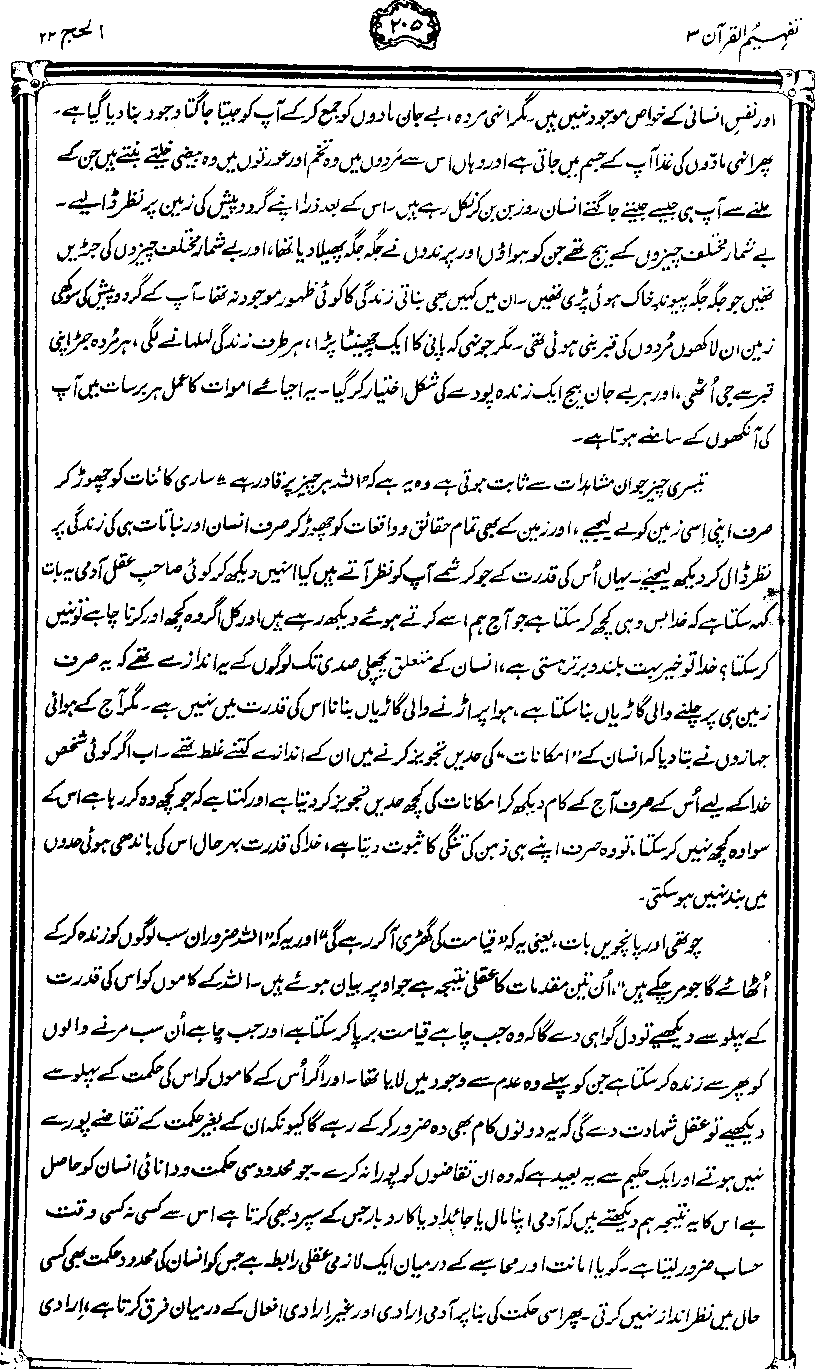 تفہیم القرآن ۳
۲۰۵
الحج ۲۲
اور نفسِ انسانی کے خواص موجود نہیں ہیں۔ مگر انہی مردہ، بے جان مادوں کو جمع کر کے آپ کو جیتا جاگتا وجود بنا دیا گیا ہے۔
پھر انہی مادّوں کی غذا آپ کے جسم میں جاتی ہے اور وہاں اس سے مُردوں میں وہ تخم اور عورتوں میں وہ بیضی خلیّے بنتے ہیں جن کے
ملنے سے آپ ہی جیسے جیتے جاگتے انسان روز بن بن کر نکل رہے ہیں۔ اس کے بعد ذرا اپنے گردوپیش کی زمین پر نظر ڈالیے۔
بے شمار مختلف چیزوں کے بیج تھے جن کو ہواؤں اور پرندوں نے جگہ جگہ پھیلا دیا تھا، اور بے شمار مختلف چیزوں کی جڑیں
تھیں جو جگہ جگہ پیوندِ خاک ہوئی پڑی تھیں۔ ان میں کہیں بھی نباتی زندگی کا کوئی ظہور موجود نہ تھا۔ آپ کے گردوپیش کی سوکھی
زمین ان لاکھوں مُردوں کی قبر بنی ہوئی تھی۔ مگر جونہی کہ پانی کا ایک چھینٹا پڑا، ہر طرف زندگی لہلہانے لگی، ہر مُردہ جڑ اپنی
قبر سے جی اُٹھی، اور ہر بے جان بیج ایک زندہ پودے کی شکل اختیار کر گیا۔ یہ احیائے اموات کا عمل ہر برسات میں آپ
کی آنکھوں کے سامنے ہوتا ہے۔
تیسری چیز جو ان مشاہدات سے ثابت ہوتی ہے وہ یہ ہے کہ "اللہ ہر چیز پر قادر ہے" ساری کائنات کو چھوڑ کر
صرف اپنی اِسی زمین کو لے لیجیے، اور زمین کے بھی تمام حقائق و واقعات کو چھوڑ کر صرف انسان اور نباتات ہی کی زندگی پر
نظر ڈال کر دیکھ لیجیے۔ یہاں اُس کی قدرت کے جو کرشمے آپ کو نظر آتے ہیں کیا انہیں دیکھ کر کوئی صاحبِ عقل آدمی یہ بات
کہہ سکتا ہے کہ خدا بس وہی کچھ کر سکتا ہے جو آج ہم اسے کرتے ہوئے دیکھ رہے ہیں اور کل اگر وہ کچھ اور کرنا چاہے تو نہیں
کر سکتا؟ خدا تو خیر بہت بلند و برتر ہستی ہے، انسان کے متعلق پچھلی صدی تک لوگوں کے یہ اندازے تھے کہ یہ صرف
زمین ہی پر چلنے والی گاڑیاں بنا سکتا ہے، ہوا پر اڑنے والی گاڑیاں بنانا اس کی قدرت میں نہیں ہے۔ مگر آج کے ہوائی
جہازوں نے بتا دیا کہ انسان کے "امکانات" کی حدیں تجویز کرنے میں ان کے اندازے کتنے غلط تھے۔ اب اگر کوئی شخص
خدا کے لیے اُس کے صرف آج کے کام دیکھ کر امکانات کی کچھ حدیں تجویز کر دیتا ہے اور کہتا ہے کہ جو کچھ وہ کر رہا ہے اس کے
سوا وہ کچھ نہیں کر سکتا، تو وہ صرف اپنے ہی ذہن کی تنگی کا ثبوت دیتا ہے، خدا کی قدرت بہرحال اس کی باندھی ہوئی حدوں
میں بند نہیں ہو سکتی۔
چوتھی اور پانچویں بات، یعنی یہ کہ "قیامت کی گھڑی آ کر رہے گی" اور یہ کہ "اللہ ضرور ان سب لوگوں کو زندہ کر کے
اُٹھائے گا جو مر چکے ہیں"، اُن تین مقدمات کا عقلی نتیجہ ہے جو اوپر بیان ہوئے ہیں۔ اللہ کے کاموں کو اس کی قدرت
کے پہلو سے دیکھیے تو دل گواہی دے گا کہ وہ جب چاہے قیامت برپا کر سکتا ہے اور جب چاہے اُن سب مرنے والوں
کو پھر سے زندہ کر سکتا ہے جن کو پہلے وہ عدم سے وجود میں لایا تھا۔ اور اگر اُس کے کاموں کو اس کی حکمت کے پہلو سے
دیکھیے تو عقل شہادت دے گی کہ یہ دونوں کام بھی وہ ضرور کر کے رہے گا کیونکہ ان کے بغیر حکمت کے تقاضے پورے
نہیں ہوتے اور ایک حکیم سے یہ بعید ہے کہ وہ ان تقاضوں کو پورا نہ کرے۔ جو محدود سی حکمت و دانائی انسان کو حاصل
ہے اس کا یہ نتیجہ ہم دیکھتے ہیں کہ آدمی اپنا مال یا جائداد یا کاروبار جس کے سپرد بھی کرتا ہے اس سے کسی نہ کسی وقت
حساب ضرور لیتا ہے۔ گویا امانت اور محاسبے کے درمیان ایک لازمی عقلی رابطہ ہے جس کو انسان کی محدود حکمت بھی کسی
حال میں نظر انداز نہیں کرتی۔ پھر اسی حکمت کی بنا پر آدمی اِرادی اور غیر اِرادی افعال کے درمیان فرق کرتا ہے، اِرادی